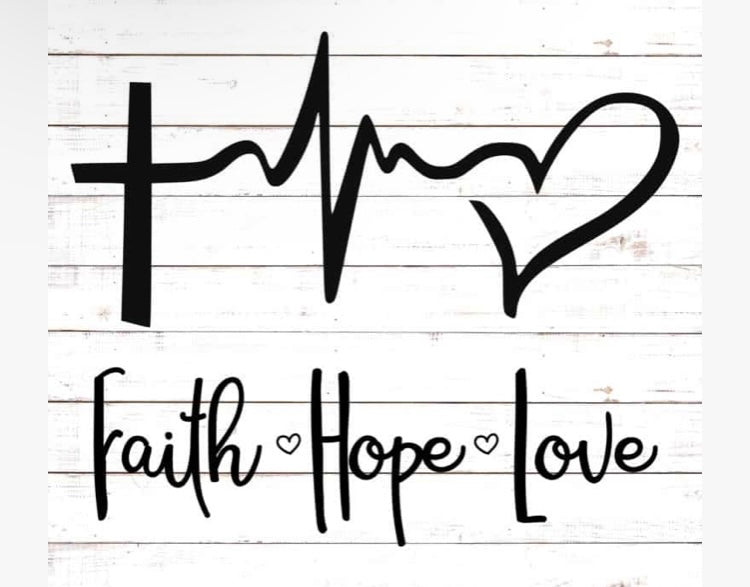 Faith ♡ Hope ♡ Love